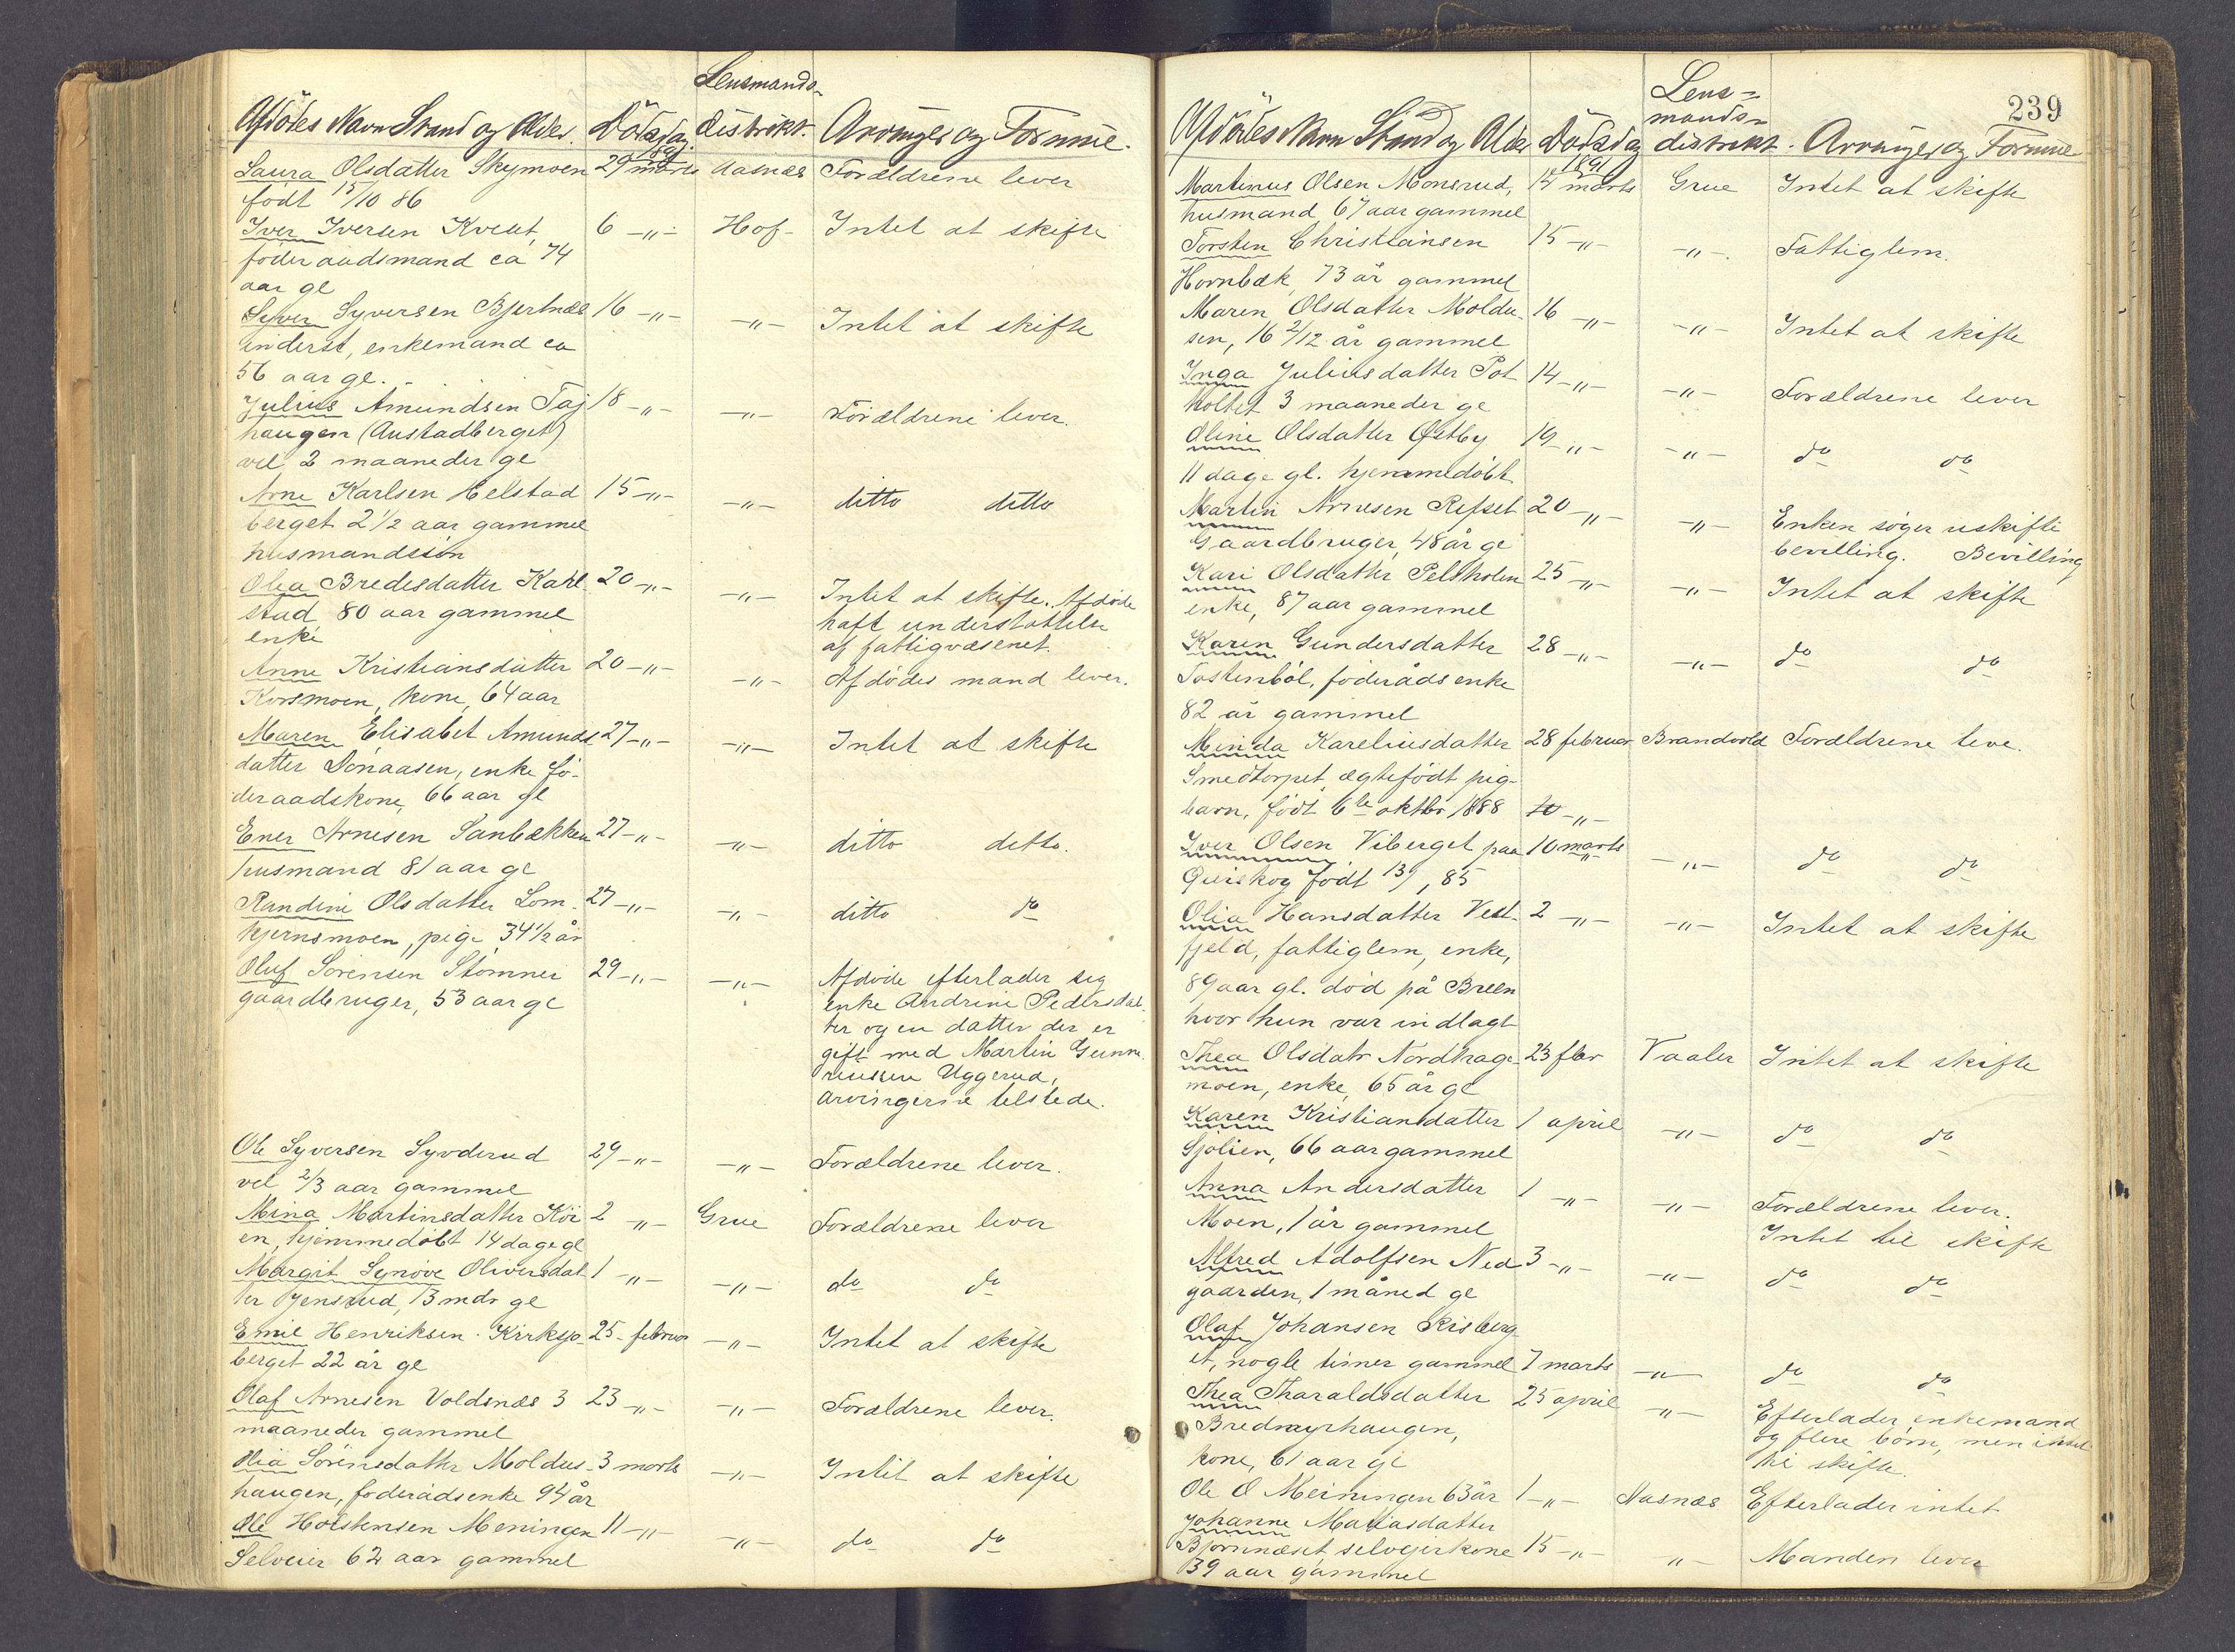 Lensmands-
Afdödes Navn Stand og Alder. Dödsdag distrikt. Arvinger og Formue.
Laura Olsdatter Skymoen 29 marts Aasnæs Forældrene lever
født 15/10 86
Iver Iversen Kveut, 6 -"- Hof- Intet at skifte
föderaadsmand ca 74
aar gl
Syver Syversen Bjertnæs 16 -"- -"- Intet at skifte
inderst, enkemand ca
56 aar gl. -
Julius Amundsen Taj 18 -"- -"- Forældrene lever.
haugen (Austadberget)
vel 2 maaneder gl
Arne Karlsen Helstad 15 -"- -"- ditto ditto
berget 2 1/2 aar gammel
husmandssön
Olea Bredesdatter Karl 20 -"- -"- Intet at skifte. Afdöde
stad 80 aar gammel haft understøttelse
enke af fattigvæsenet.
Anne Kristiansdatter 20 -"- -"- Afdödes mand lever.
Korsmoen, kone, 64 aar
Maren Elisabet Amunds 27 -"- -"- Intet at skifte
datter Sönaasen, enke fö-
deraadskone, 66 aar gl
Ener Arnesen Sanbækken 27 -"- -"- ditto ditto.
husmand 81 aar gl
Randine Olsdatter Lom- 27 -"- -"- ditto do
kjernsmoen, pige 34 1/2 år
Oluf Sörensen Stömner 29 -"- -"- Afdöde efterlader sig
gaardbruger, 53 aar gl enke Andrine Pedersdat-
ter og en datter der er
gift med Martin Gunne
riussen Uggerud,
arvingerne tilstede.
Ole Syversen Syvderud 29 -"- -"- Forældrene lever.
vel 2/3 aar gammel
Mina Martinsdatter Köi 2 -"- Grue Forældrene lever
en, hjemmedöbt 14 dage gl
Margit Synöve Oliversdat 1 -"- -"- do do
ter Jensrud, 13 mdr gl
Emil Henriksen Kirksjö- 25 februar -"- Intet at skifte
berget 22 år gl
Olaf Arnesen Voldsnæs 3 23 -"- -"- Forældrene lever.
maaneder gammel
Olia Sörensdatter Moldus- 3 marts -"- Intet at skifte
haugen, föderådsenke 94 år
Ole Holstensen Meningen 11 -"- -"- do do
Selveier 62 aar gammel
239
Lens-
mands-
Afdödes Navn Stand og Alder Dödsdag distrikt. Arvinger og Formue
Martinus Olsen Monsrud, 14 marts Grue Intet at skifte
husmand, 67 aar gammel
Torsten Christiansen 15 -"- -"- Fattiglem.
Hornbæk, 73 år gammel
Maren Olsdatter Moldu- 16 -"- -"- Intet at skifte
sen, 16 2/12 år gammel
Inga Juliusdatter Pot 14 -"- -"- Forældrene lever
holtet 3 maaneder gl
Oline Olsdatter Østby 19 -"- -"- do do
11 dage gl. hjemmedöbt
Martin Arnesen Refset 20 -"- -"- Enken söger uskifte
Gaardbruger, 48 år gl bevilling. Bevilling
Kari Olsdatter Peltholen 25 -"- -"- Intet at skifte
enke, 87 aar gammel
Karen Gundersdatter 28 -"- -"- do do
Tostenböl, föderådsenke
82 år gammel
Minda Kareliusdatter 28 februar Brandvold Forældrene leve.
Smedtorpet, ægtefödt pig-
barn, födt 6te oktbr 1888 10 -"-
Iver Olsen Viberget paa 10 marts -"- do do
Qvirskog födt 13/1, 85
Olia Hansdatter Vest- 2 -"- -"- Intet at skifte
fjeld, fattiglem, enke,
89 aar gl. död på Breen
hvor hun var indlagt
Thea Olsdatr Nordhage- 23 fbr Vaaler Intet at skifte
moen, enke, 65 år gl
Karen Kristiansdatter 1 april -"- do do
Sjölien, 66 aar gammel
Anna Andersdatter 1 -"- -"- Forældrene lever.
Moen, 1 år gammel Intet til skifte
Alfred Adolfsen Ned 3 -"- -"- do do
gaarden, 1 måned gl
Olaf Johansen Risberg
et, nogle timer gammel 7 marts -"- do do
Thea Tharaldsdatter 25 april -"- Efterlader enkemand
Bredmyrhaugen, og flere börn, men intet
kone, 61 aar gl til skifte.
Ole O Meiningen 63 år 1 -"- Aasnæs Efterlader intet
Johanne Matiasdatter
Björnnæset, selvejerkone 15 -"- -"- Manden lever
39 aar gammel